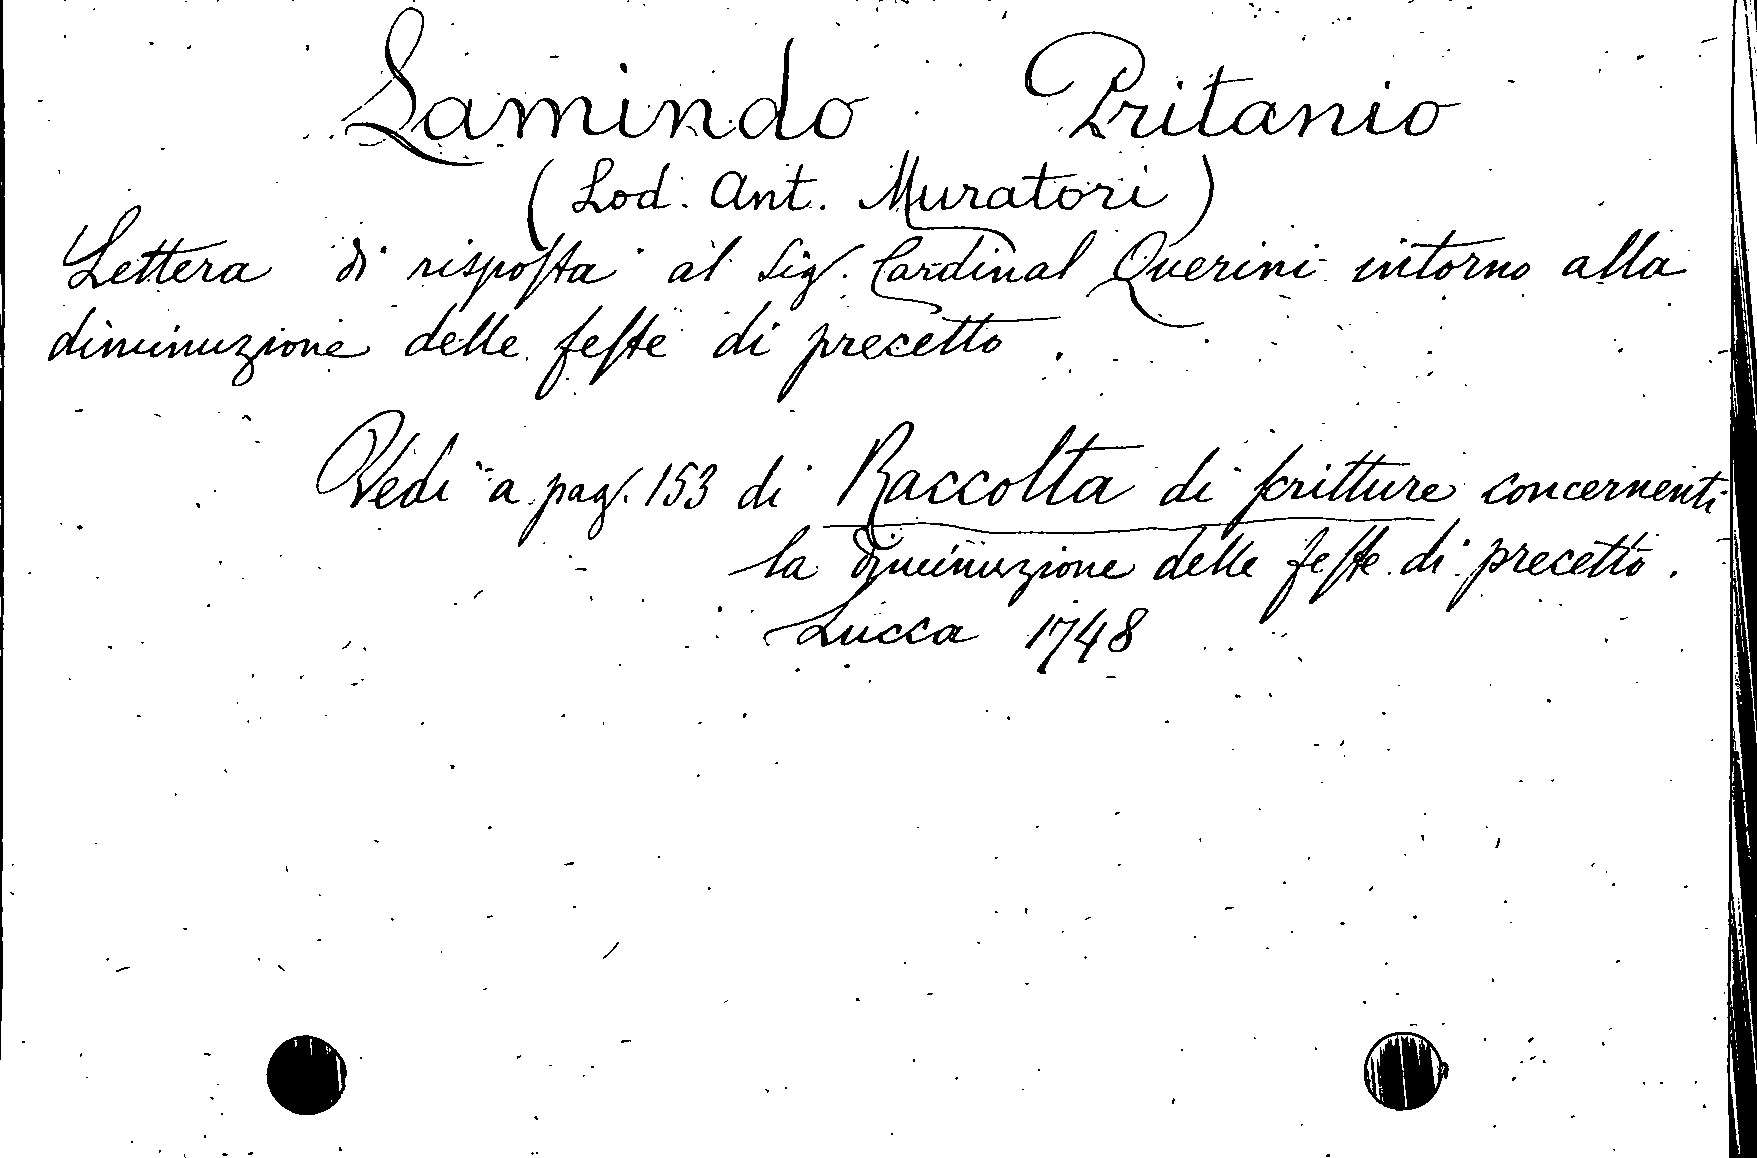 Lamindo Pritanio
(Lod. Ant. Muratori)
Lettera di risposta al Sig. Cardinal Querini intorno alla
diminuzione delle feste di precetto.
Vedi a pag. 153 di Raccolta di scritture concernenti
la diminuzione delle feste di precetto.
Lucca 1748